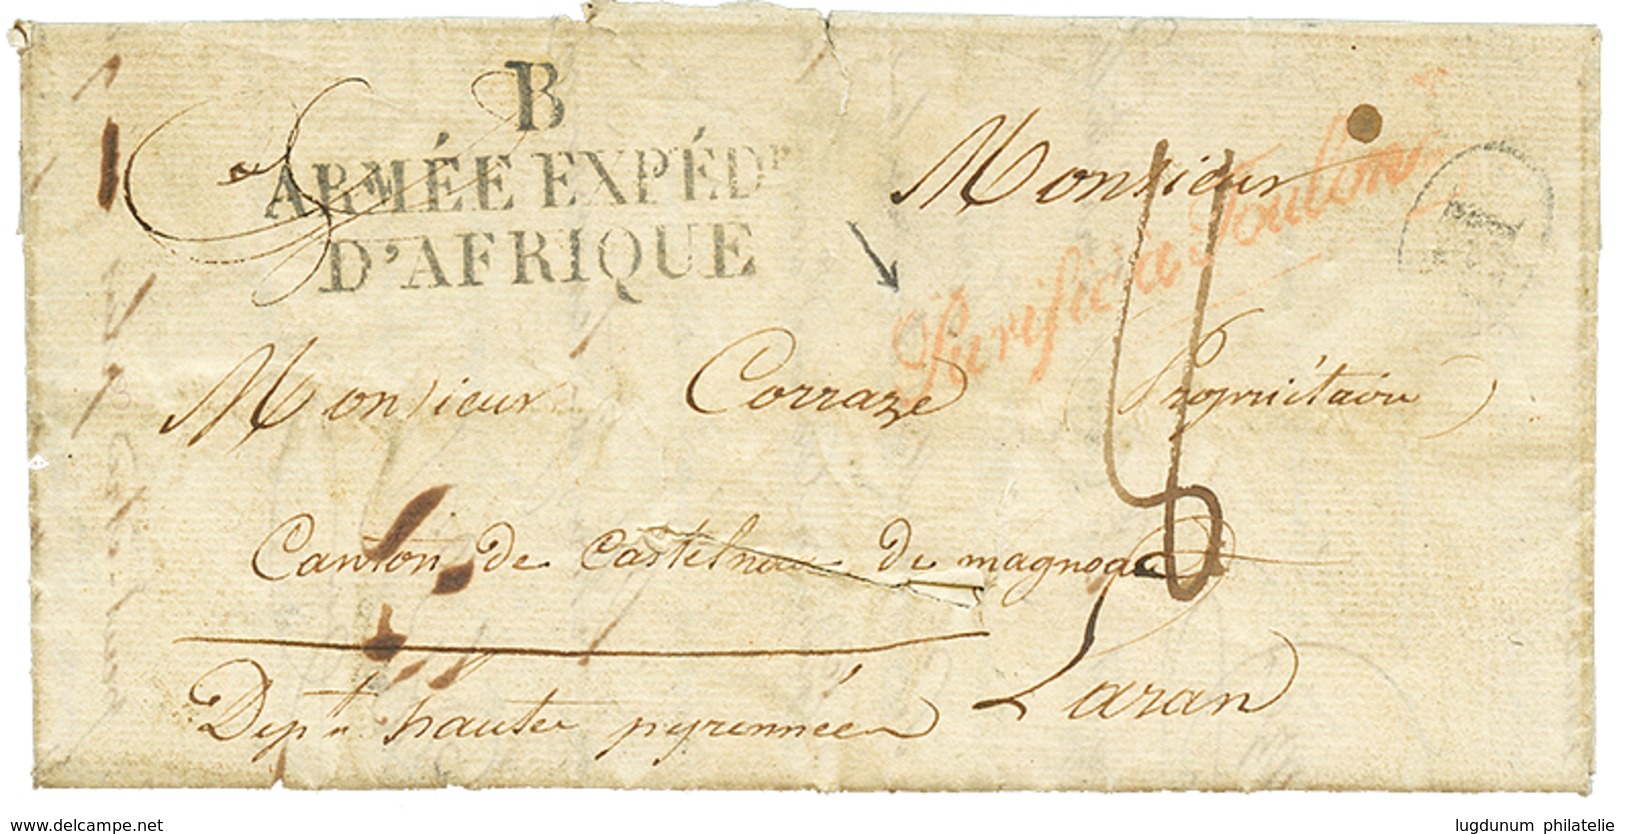 B
ARMÉE EXPÉD^re
D'AFRIQUE
Purifié à Toulon
Monsieur
Monsieur Corraze Propriétaire
Canton de Castelnau de magnoac
Laran
Dep^t h hautes pyrennées
www.delcampe.net
lugdunum philatelie